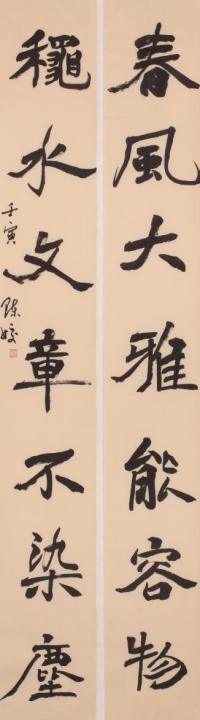 春風大雅能容物
穐水文章不染塵
壬寅 陈